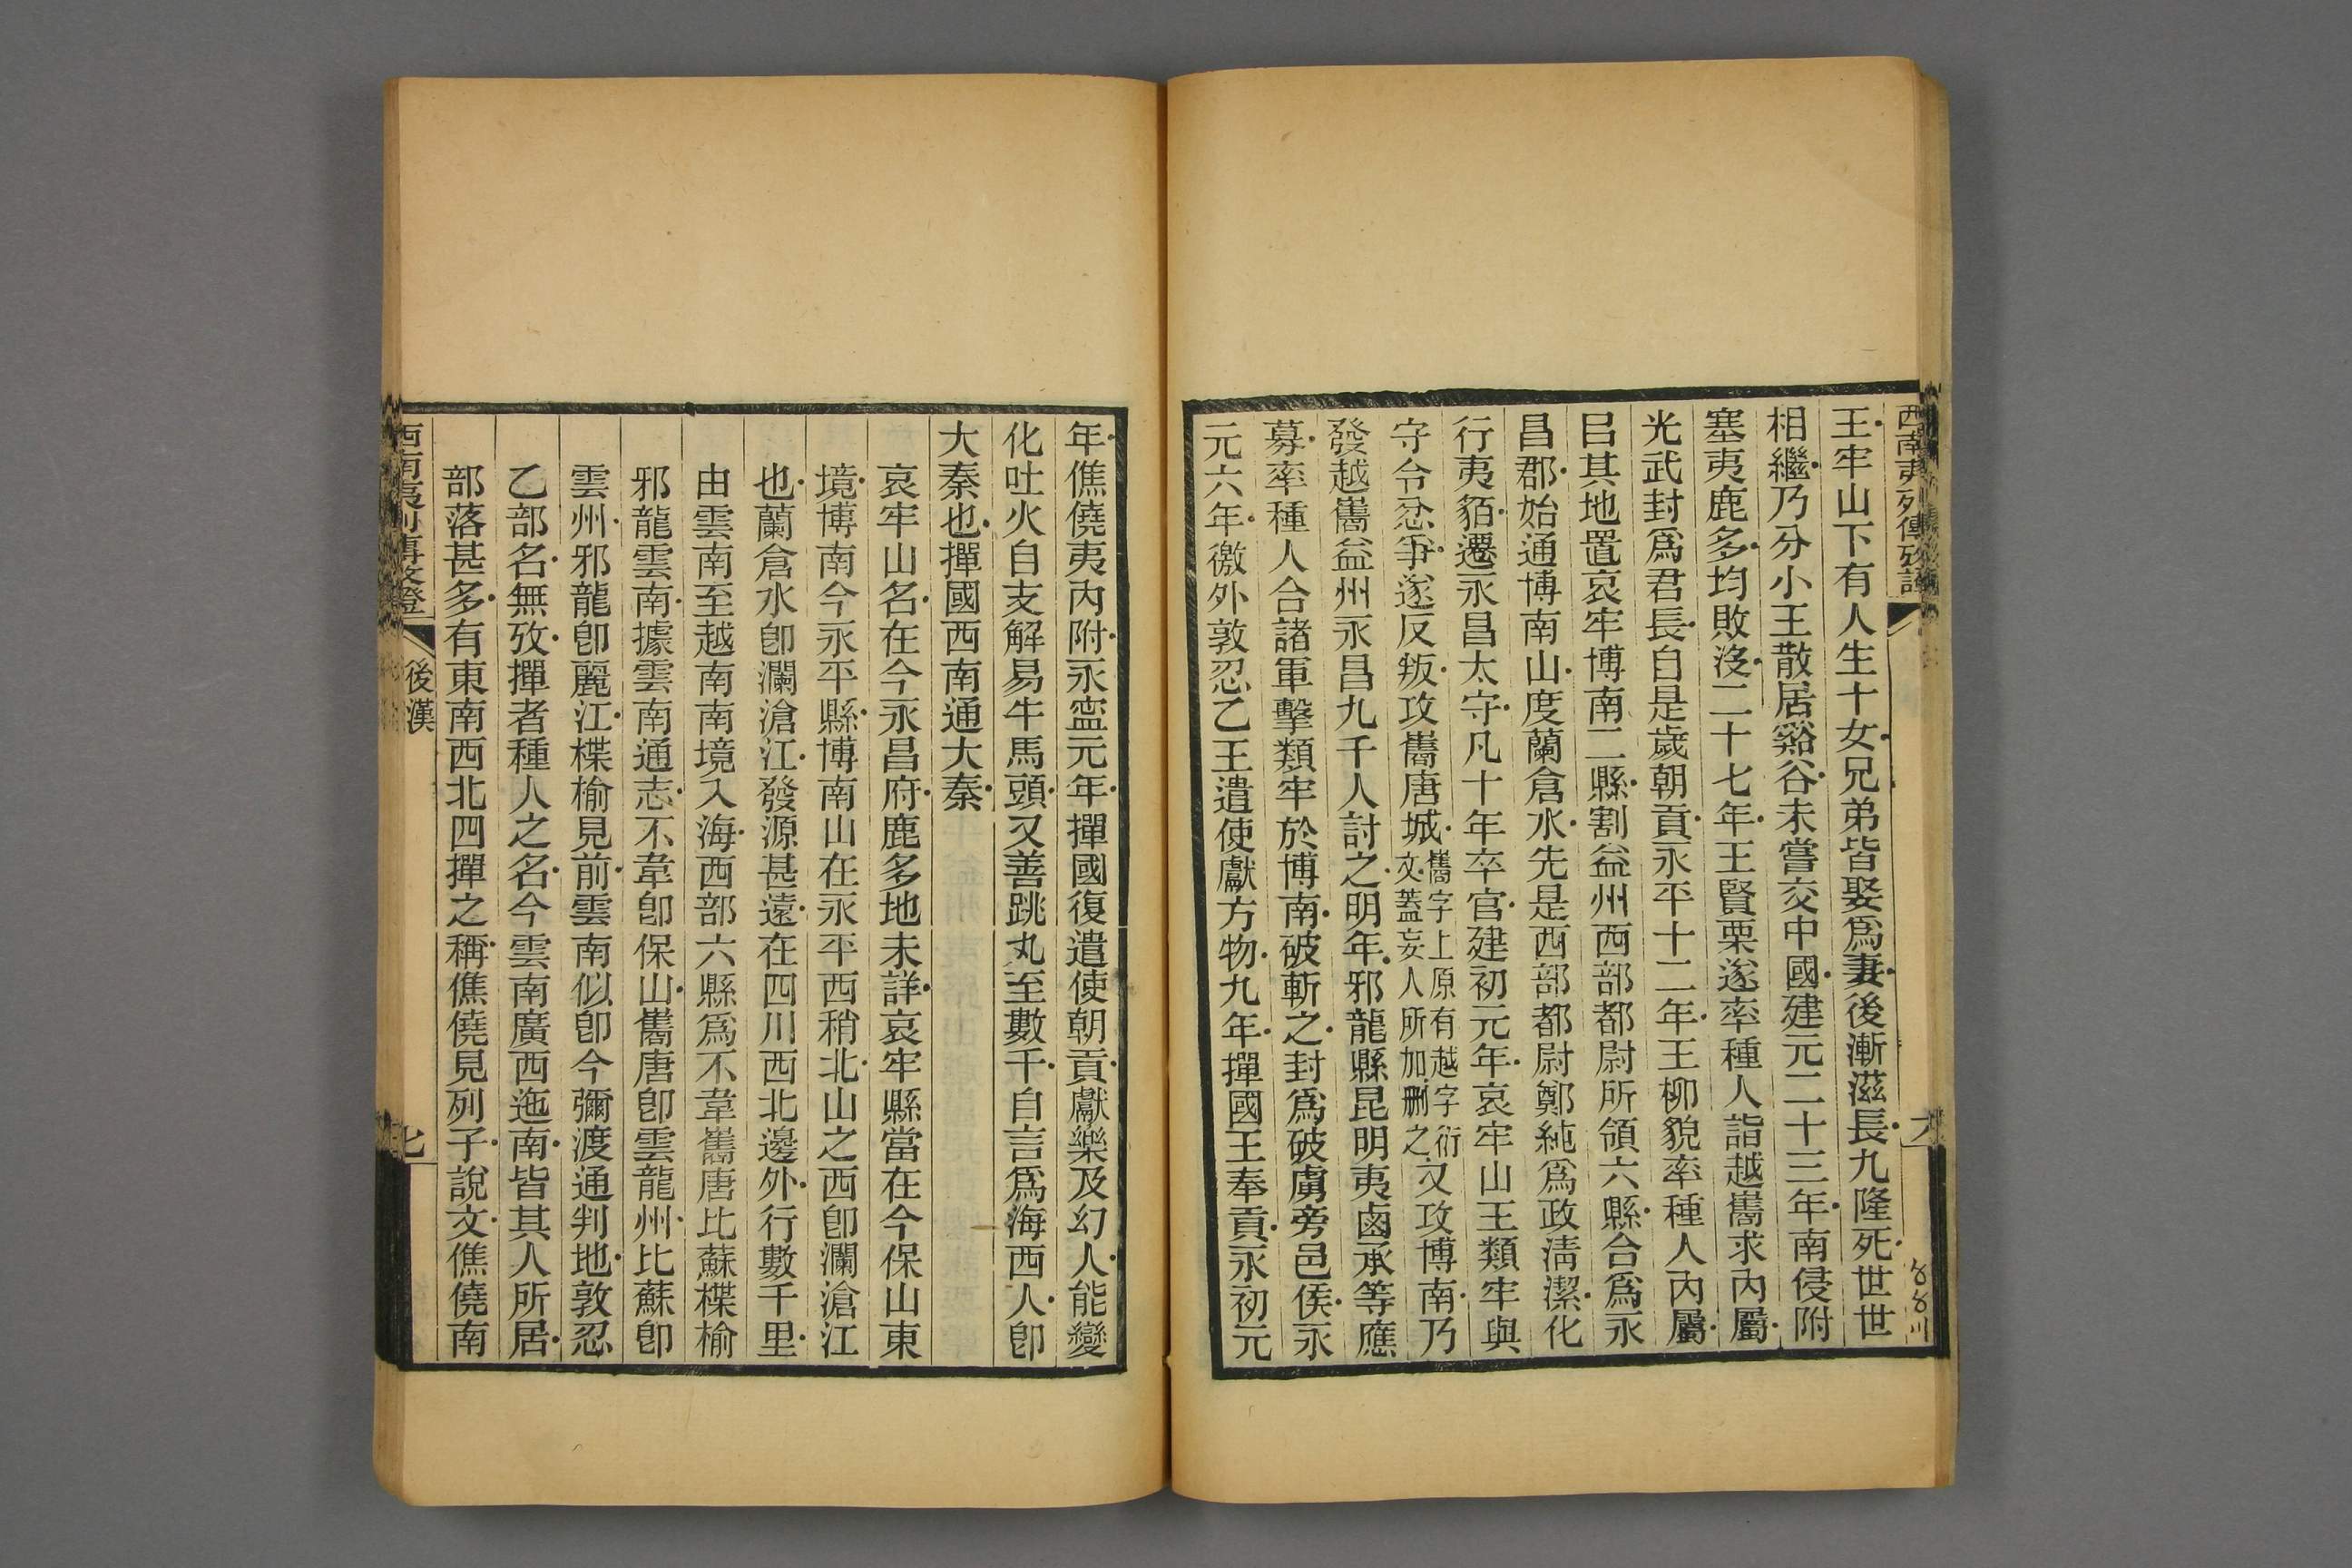 西南夷列傳攷證
王牢山下有人生十女兄弟皆娶爲妻後漸滋長九隆死世世
相繼乃分小王散居谿谷未嘗交中國建元二十三年南侵附
塞夷鹿多均敗沒二十七年王賢栗遂率種人詣越巂求內屬
光武封爲君長自是歲朝貢永平十二年王柳貌率種人內屬
㠯其地置哀牢博南二縣割益州西部都尉所領六縣合爲永
昌郡始通博南山度蘭倉水先是西部都尉鄭純爲政清潔化
行夷貊遷永昌太守凡十年卒官建初元年哀牢山王類牢與
守令忿爭遂反叛攻巂唐城巂字上原有越字衍文蓋妄人所加刪之又攻博南乃
發越巂益州永昌九千人討之明年邪龍縣昆明夷鹵承等應
募率種人合諸軍擊類牢於博南破斬之封爲破虜旁邑侯永
元六年徼外敦忍乙王遣使獻方物九年撣國王奉貢永初元
年僬僥夷內附永寍元年撣國復遣使朝貢獻樂及幻人能變
化吐火自支解易牛馬頭又善跳丸至數千自言爲海西人卽
大秦也撣國西南通大秦
哀牢山名在今永昌府鹿多地未詳哀牢縣當在今保山東
境博南今永平縣博南山在永平西稍北山之西卽瀾滄江
也蘭倉水卽瀾滄江發源甚遠在四川西北邊外行數千里
由雲南至越南南境入海西部六縣爲不韋巂唐比蘇楪榆
邪龍雲南據雲南通志不韋卽保山巂唐卽雲龍州比蘇卽
雲州邪龍卽麗江楪榆見前雲南似卽今彌渡通判地敦忍
乙部名無攷撣者種人之名今雲南廣西迤南皆其人所居
部落甚多有東南西北四撣之稱僬僥見列子說文僬僥南
西南夷列傳攷證
後漢
七